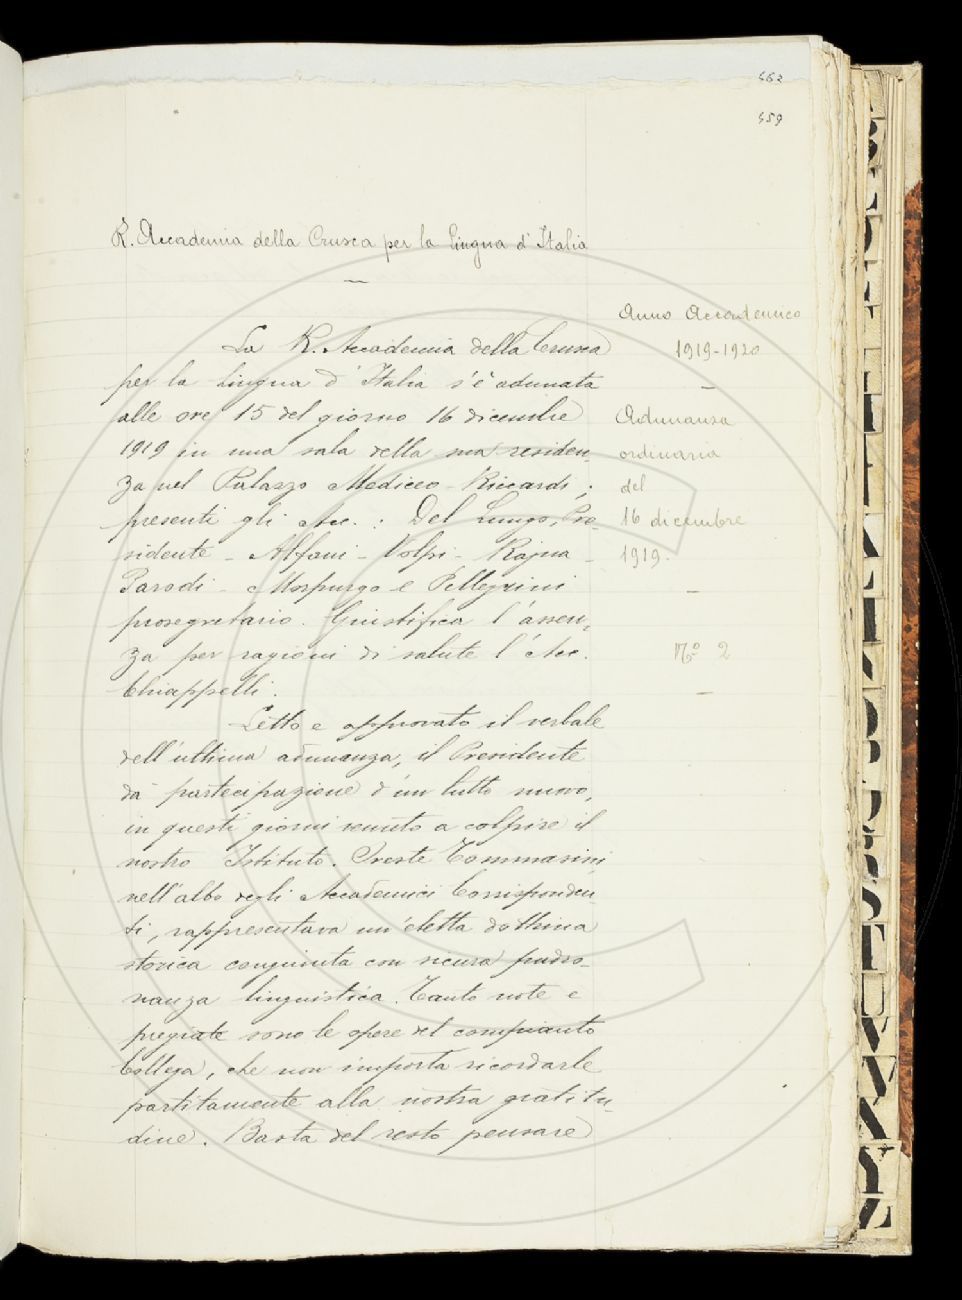 662
659
R. Accademia della Crusca per la lingua d'Italia
Anno Accademico
1919-1920
Adunanza
ordinaria
del
16 dicembre
1919.
N.º 2
La R. Accademia della Crusca
per la lingua d'Italia s'è adunata
alle ore 15 del giorno 16 dicembre
1919 in una sala della sua residen-
za nel Palazzo Mediceo-Riccardi;
presenti gli Acc.: Del Lungo, Pre-
sidente - Alfani - Volpi - Rajna -
Parodi - Morpurgo e Pellegrini
prosegretario. Giustifica l'assen-
za per ragioni di salute l'Acc.
Chiappelli.
Letto e approvato il verbale
dell'ultima adunanza, il Presidente
dà partecipazione d'un lutto nuovo,
in questi giorni venuto a colpire il
nostro Istituto. Oreste Tommasini,
nell'albo degli Accademici Corrisponden
ti, rappresentava un'eletta dottrina
storica congiunta con sicura padro-
nanza linguistica. Tanto note e
pregiate sono le opere del compianto
Collega, che non importa ricordarle
partitamente alla nostra gratitu-
dine. Basta del resto pensare
B
C
D
E
F
S
T
U
V
X
Y
Z